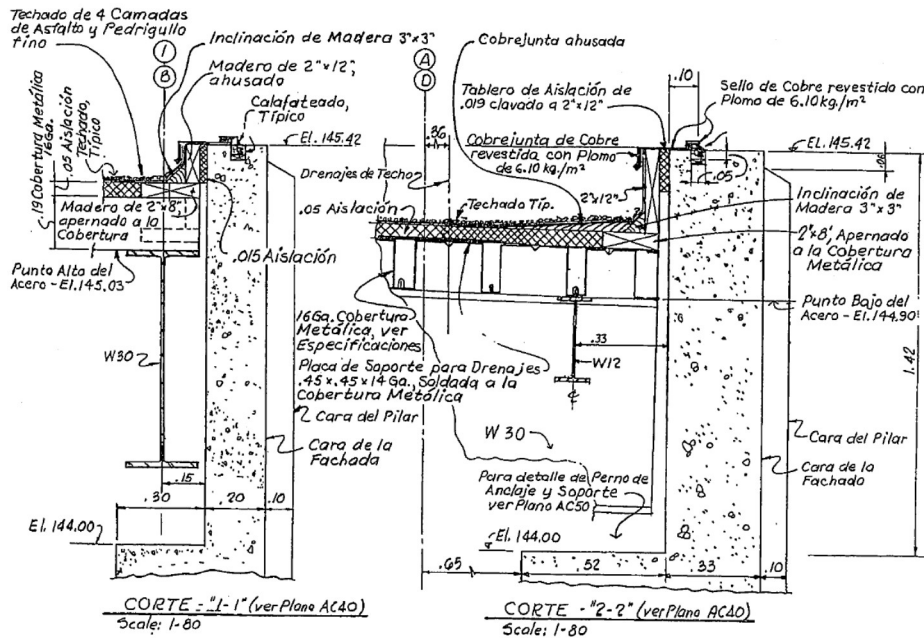 Techado de 4 Camadas
de Asfalto y Pedrigullo
fino
1
B
Inclinación de Madera 3"x3"
Madero de 2"x12",
ahusado
Calafateado,
Típico
El. 145.42
.19 Cobertura Metálica
16Ga.
.05 Aislación
Techado,
Típico
Madero de 2"x8",
apernado a la
Cobertura
.015 Aislación
Punto Alto del
Acero - El. 145.03
W30
Cara del Pilar
Cara de la
Fachada
.15
.30
.20
.10
El. 144.00
CORTE - "1-1" (ver Plano AC40)
Scale: 1-80
A
D
Cobrejunta ahusada
.10
Tablero de Aislación de
.019 clavado a 2"x12"
Sello de Cobre revestido con
Plomo de 6.10 kg/m²
El. 145.42
.36
Cobrejunta de Cobre
revestida con Plomo
de 6.10 kg/m²
.06
.05
Drenajes de Techo
2"x12"
.05 Aislación
Techado Típ.
Inclinación de
Madera 3"x3"
2"x8", Apernado
a la Cobertura
Metálica
Punto Bajo del
Acero - El. 144.90
16Ga. Cobertura
Metálica, ver
Especificaciones
.33
W12
Placa de Soporte para Drenajes
.45 x .45 x 14 Ga., Soldada a la
Cobertura Metálica
1.42
W 30
Cara del Pilar
Cara de la
Fachada
Para detalle de Perno de
Anclaje y Soporte
ver Plano AC50
El. 144.00
.65
.52
.33
.10
CORTE - "2-2" (ver Plano AC40)
Scale: 1-80